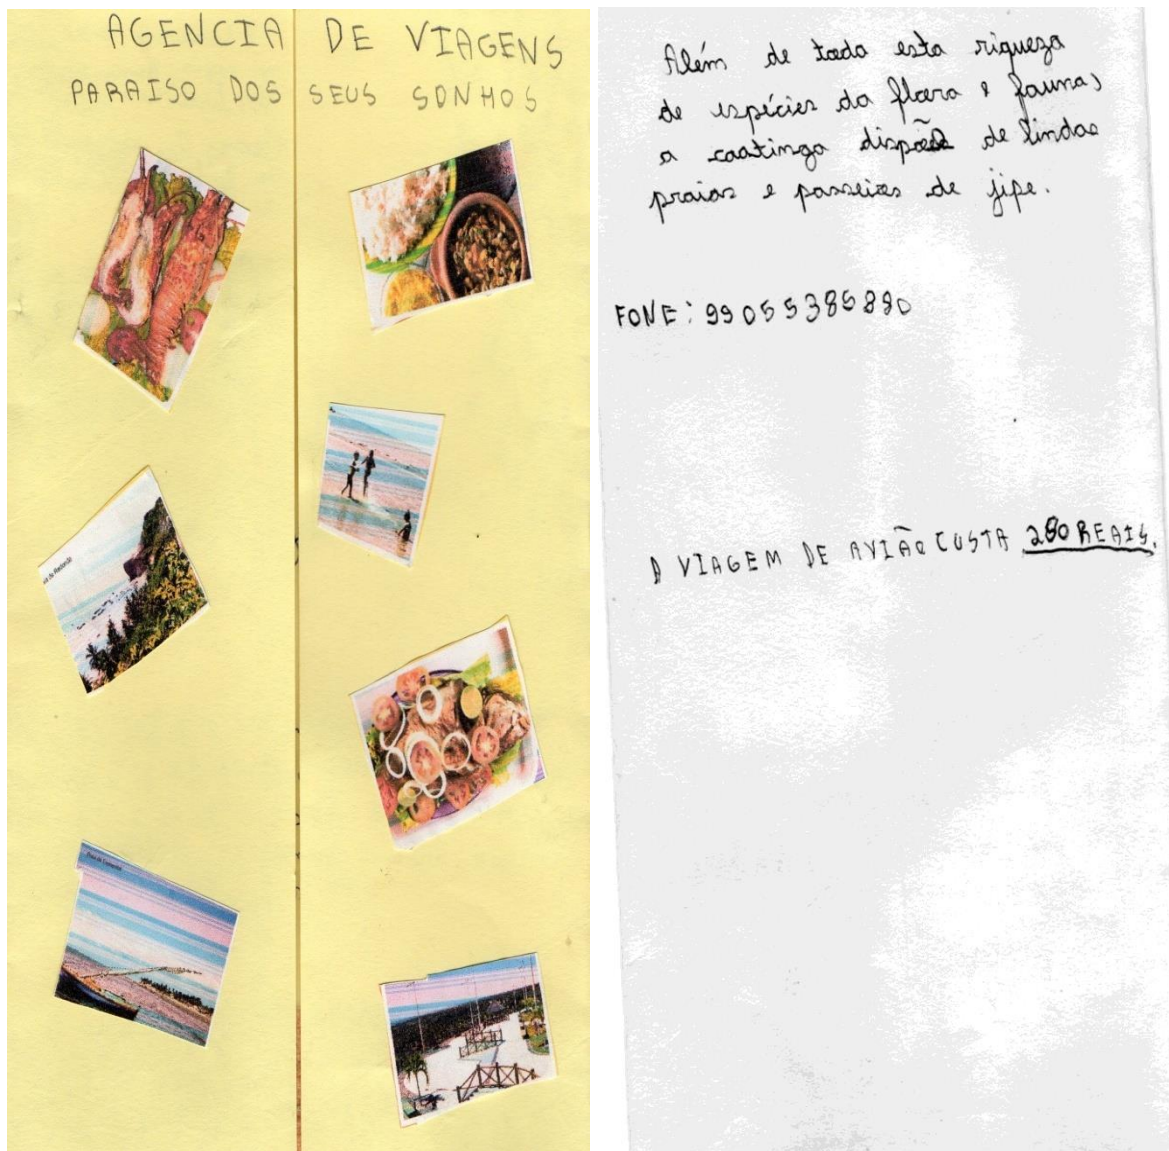 AGENCIA DE VIAGENS
PARAISO DOS SEUS SONHOS
Praia de
Além de toda esta riqueza
de espécies da flora e fauna,
a caatinga dispõe de lindas
praias e passeios de jipe.
FONE: 99055386880
A VIAGEM DE AVIÃO CUSTA 280 REAIS.